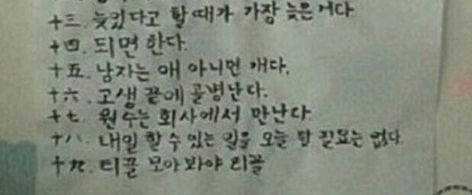 十三. 늦었다고 할때가 가장 늦은거다.
十四. 되면 한다.
十五. 남자는 애 아니면 개다.
十六. 고생 끝에 골병난다.
十七. 원수는 회사에서 만난다.
十八. 내일 할 수 있는 일을 오늘 할 필요는 없다.
十九. 티끌 모아 봐야 티끌